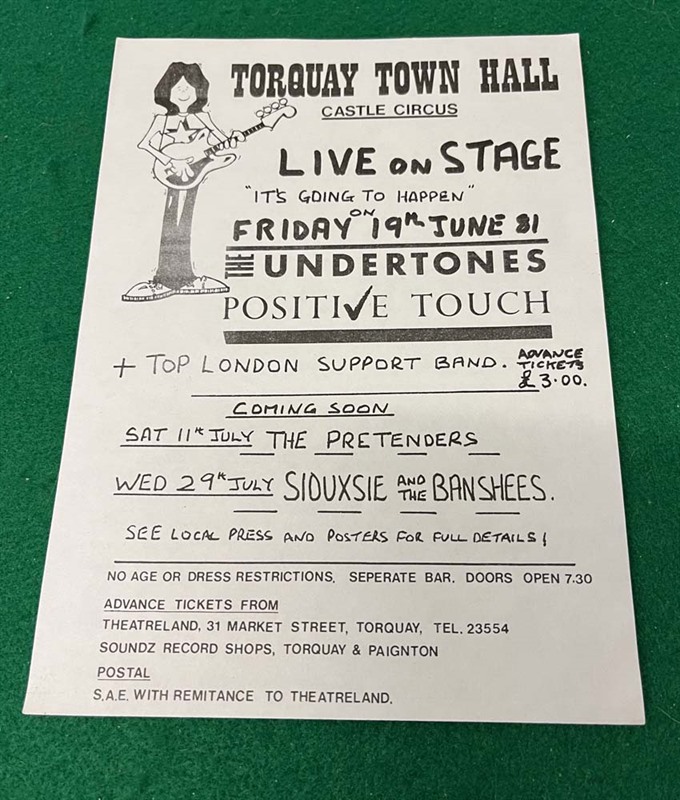 TORQUAY TOWN HALL
CASTLE CIRCUS
LIVE ON STAGE
"IT'S GOING TO HAPPEN"
ON
FRIDAY 19th JUNE 81
THE UNDERTONES
POSITIVE TOUCH
+ TOP LONDON SUPPORT BAND. ADVANCE TICKETS £3.00.
COMING SOON
SAT 11th JULY THE PRETENDERS
WED 29th JULY SIOUXSIE AND THE BANSHEES.
SEE LOCAL PRESS AND POSTERS FOR FULL DETAILS!
NO AGE OR DRESS RESTRICTIONS. SEPERATE BAR. DOORS OPEN 7.30
ADVANCE TICKETS FROM
THEATRELAND, 31 MARKET STREET, TORQUAY, TEL. 23554
SOUNDZ RECORD SHOPS, TORQUAY & PAIGNTON
POSTAL
S.A.E. WITH REMITANCE TO THEATRELAND.